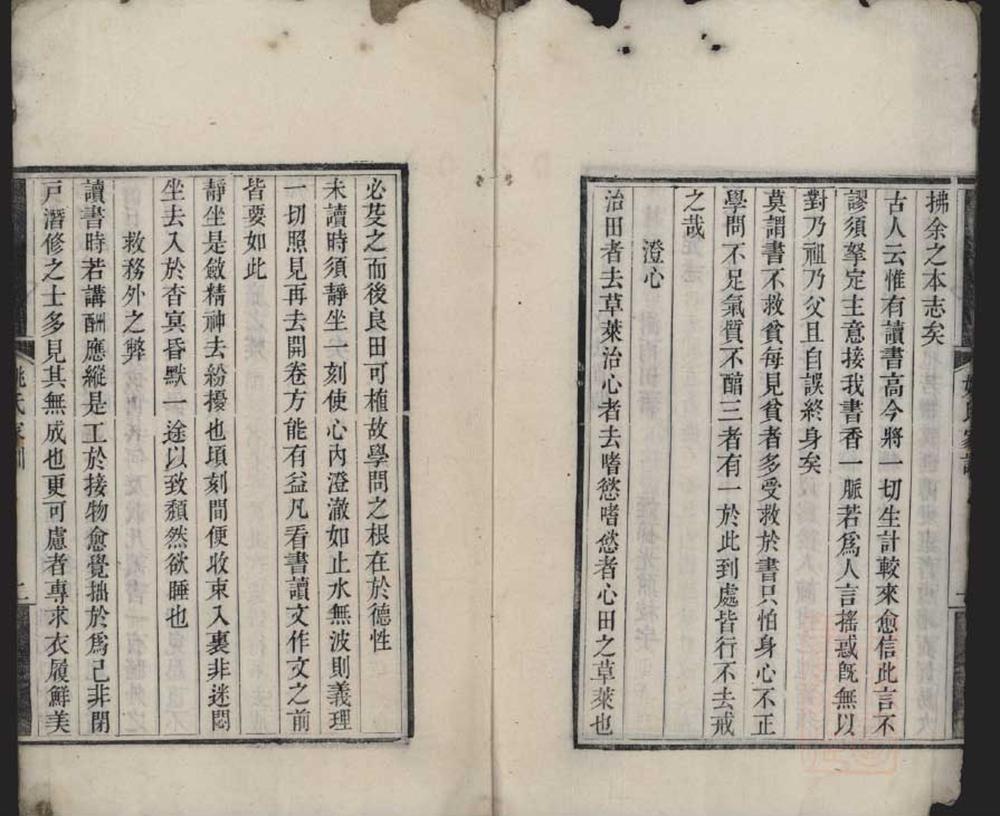 拂余之本志矣
古人云惟有讀書高今將一切生計較來愈信此言不
謬須拏定主意接我書香一脈若爲人言搖惑旣無以
對乃祖乃父且自誤終身矣
莫謂書不救貧每見貧者多受救於書只怕身心不正
學問不足氣質不醕三者有一於此到處皆行不去戒
之哉
澄心
治田者去草萊治心者去嗜慾嗜慾者心田之草萊也
必芟之而後良田可植故學問之根在於德性
未讀時須靜坐一刻使心內澄澈如止水無波則義理
一切照見再去開卷方能有益凡看書讀文作文之前
皆要如此
靜坐是斂精神去紛擾也頃刻間便收束入裏非迷悶
坐去入於杳冥昏默一途以致頽然欲睡也
救務外之弊
讀書時若講酬應縱是工於接物愈覺拙於爲己非閉
戸潛修之士多見其無成也更可慮者專求衣履鮮美
姚氏家訓
二